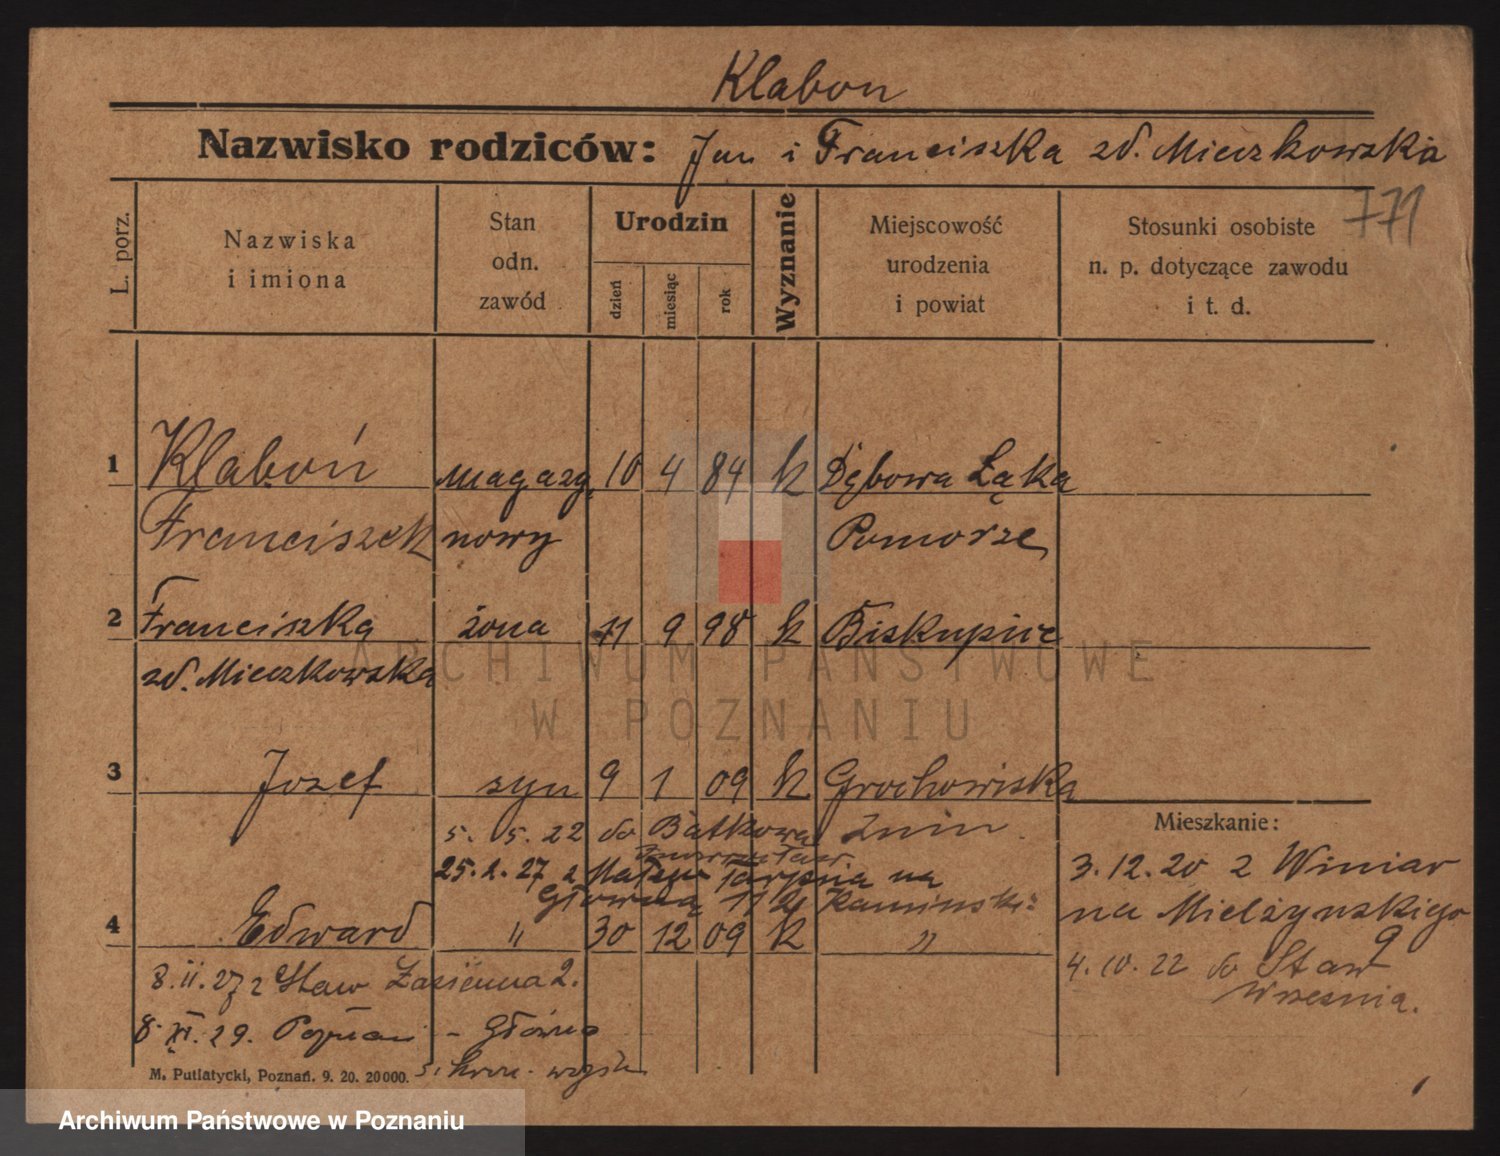 Klabon
Nazwisko rodziców: Jan i Franciszka zd. Mieczkowska
771
L. porz.
Nazwiska
i imiona
Stan
odn.
zawód
Urodzin
dzień
miesiąc
rok
Wyznanie
Miejscowość
urodzenia
i powiat
Stosunki osobiste
n. p. dotyczące zawodu
i t. d.
1 Klaboń magazy 10 4 84 k Dębowa Łąka
Franciszek nowy Pomorze
2 Franciszka żona 11 9 98 k Biskupice
zd. Mieczkowska
ARCHIWUM PAŃSTWOWE
W POZNANIU
3 Jozef syn 9 1 09 k Grochowiska
5. 5. 22 do Batkowa Znin
25.2.27 z na
Główną 11
4 Edward " 30 12 09 k "
Mieszkanie:
3.12.20 z Winiar
na Mielżynskiego
9
4.10.22 do Staw
Wrzesnia.
8.II.27 z Staw 2.
8.XI.29. Poznań - Główna
M. Putiatycki, Poznań. 9. 20. 20000.
Archiwum Państwowe w Poznaniu